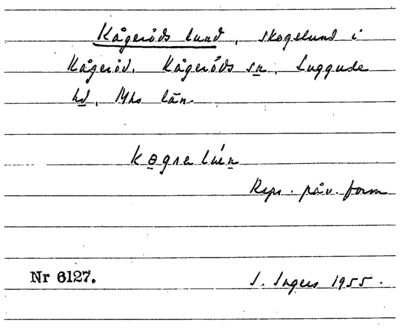 Kågeröds lund, skogslund i
Kågeröd. Kågeröds sn. Luggude
hd, Mhs län.
Kogralún
Rspr. påv. form
Nr 6127.
I. Ingers 1955.